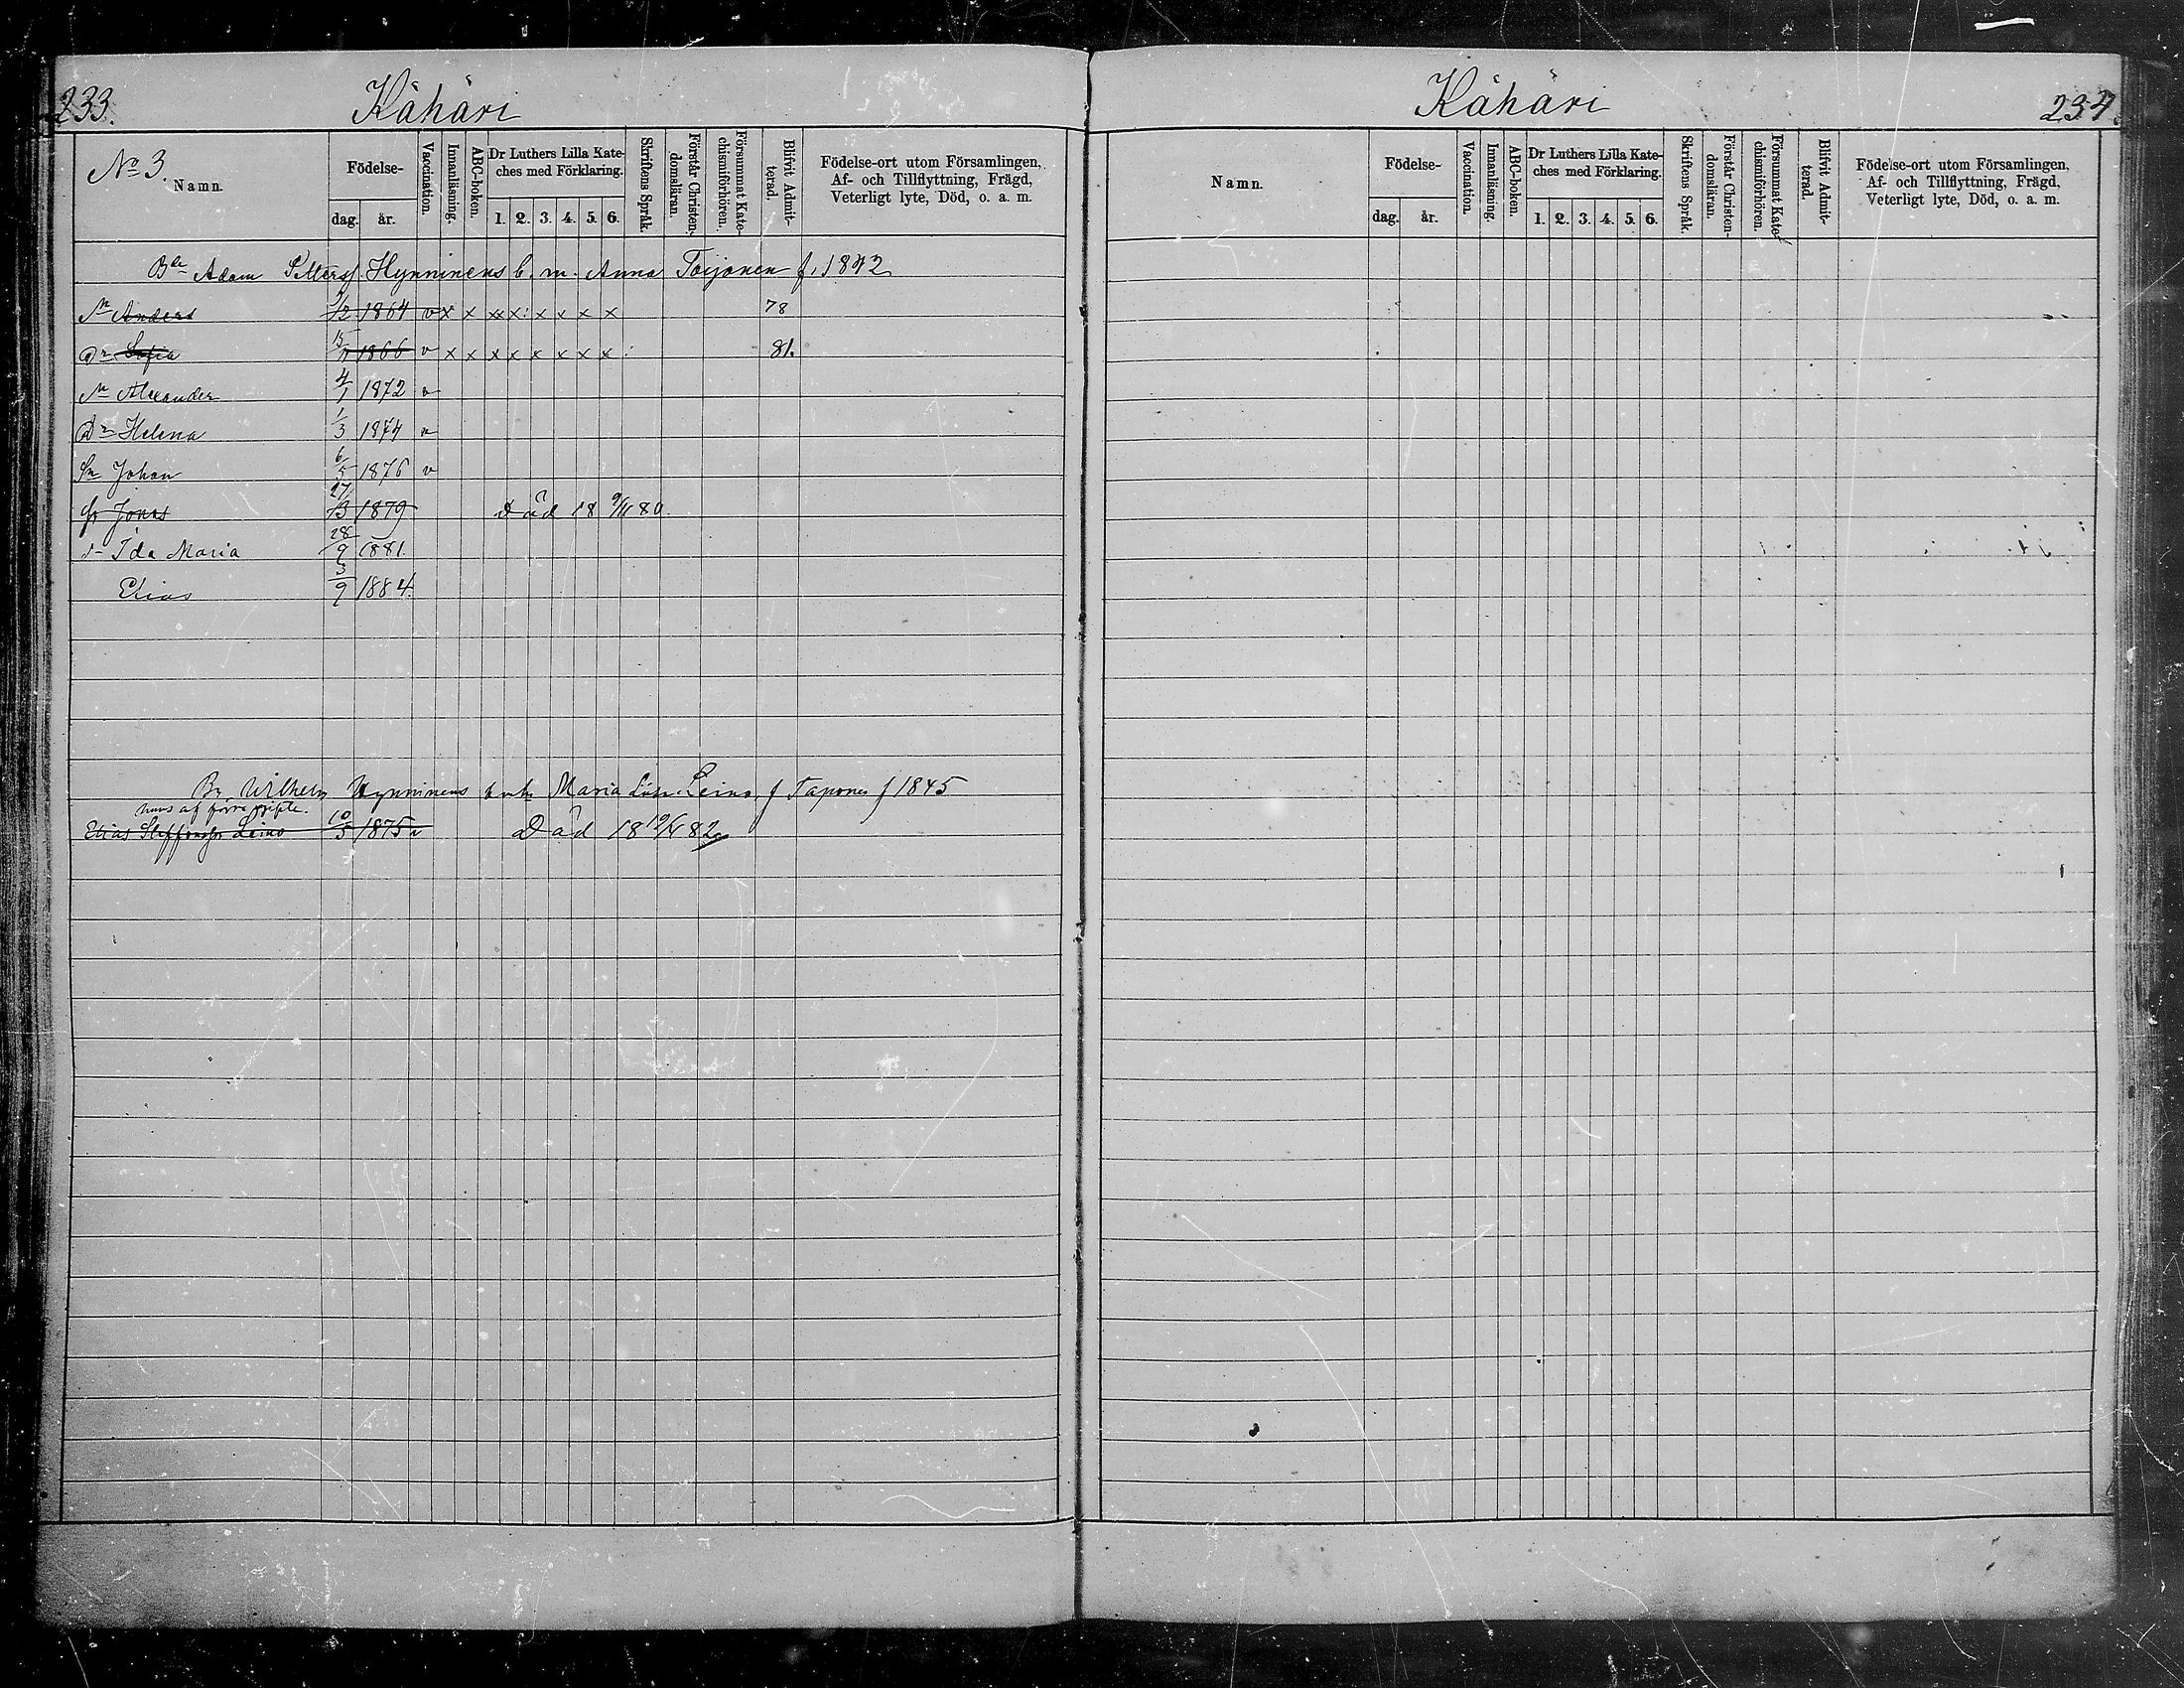 233.
Kähäri
No 3.
Namn.
Födelse-
dag.
år.
Vaccination.
Innanläsning.
ABC-boken.
Dr Luthers Lilla Kate-
ches med Förklaring.
1. 2. 3. 4. 5. 6.
Skriftens Språk.
Förstår Christen-
domsläran.
Försummat Kate-
chismiförhören.
Blifvit Admit-
terad.
Födelse-ort utom Församlingen,
Af- och Tillflyttning, Frägd,
Veterligt lyte, Död, o. a. m.
Adam Hynninens b. m. Anna Toijonen f. 1842
Anders 1864 v x x x x : x x x x 78
Dr Sofia 15 1866 v x x x x x x x x : 81.
Sn Alexander 4/1 1872 v
Dr Helena 1/3 1874 v
Sn Johan 6/5 1876 v
Jonas 27/3 1879 Död 18 9/11 80
Ida Maria 28/9 1881.
Elias 3/9 1884.
Wilhelm Hynninens Maria Leino f Taponen f 1845
hans af förra gifte.
Elias Leino 10/5 1875 v Död 18 82
Kähäri
234.
Namn.
Födelse-
dag.
år.
Vaccination.
Innanläsning.
ABC-boken.
Dr Luthers Lilla Kate-
ches med Förklaring.
1. 2. 3. 4. 5. 6.
Skriftens Språk.
Förstår Christen-
domsläran.
Försummat Kate-
chismiförhören.
Blifvit Admit-
terad.
Födelse-ort utom Församlingen,
Af- och Tillflyttning, Frägd,
Veterligt lyte, Död, o. a. m.